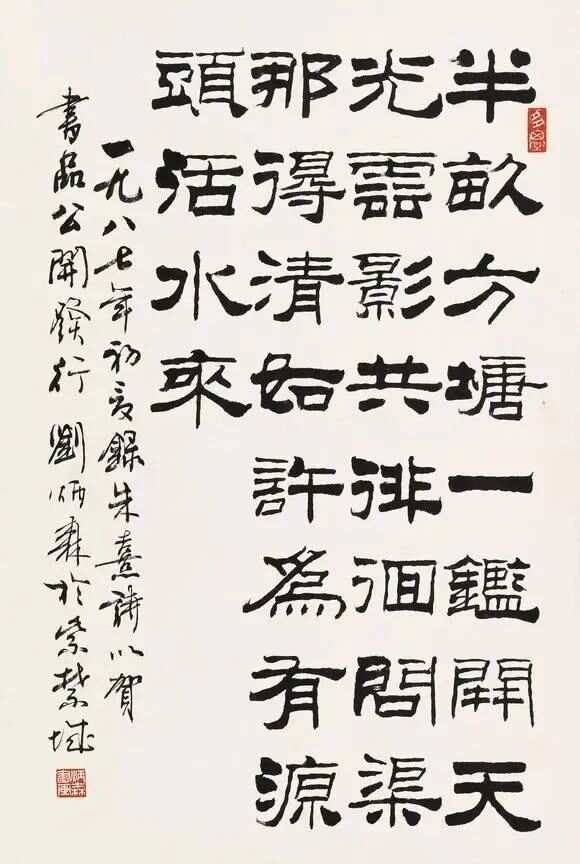 半畝方塘一鑑開天
光雲影共徘徊問渠
那得清如許為有源
頭活水來
一九八七年初夏錄朱熹詩以賀
書品公開發行劉炳森於紫禁城